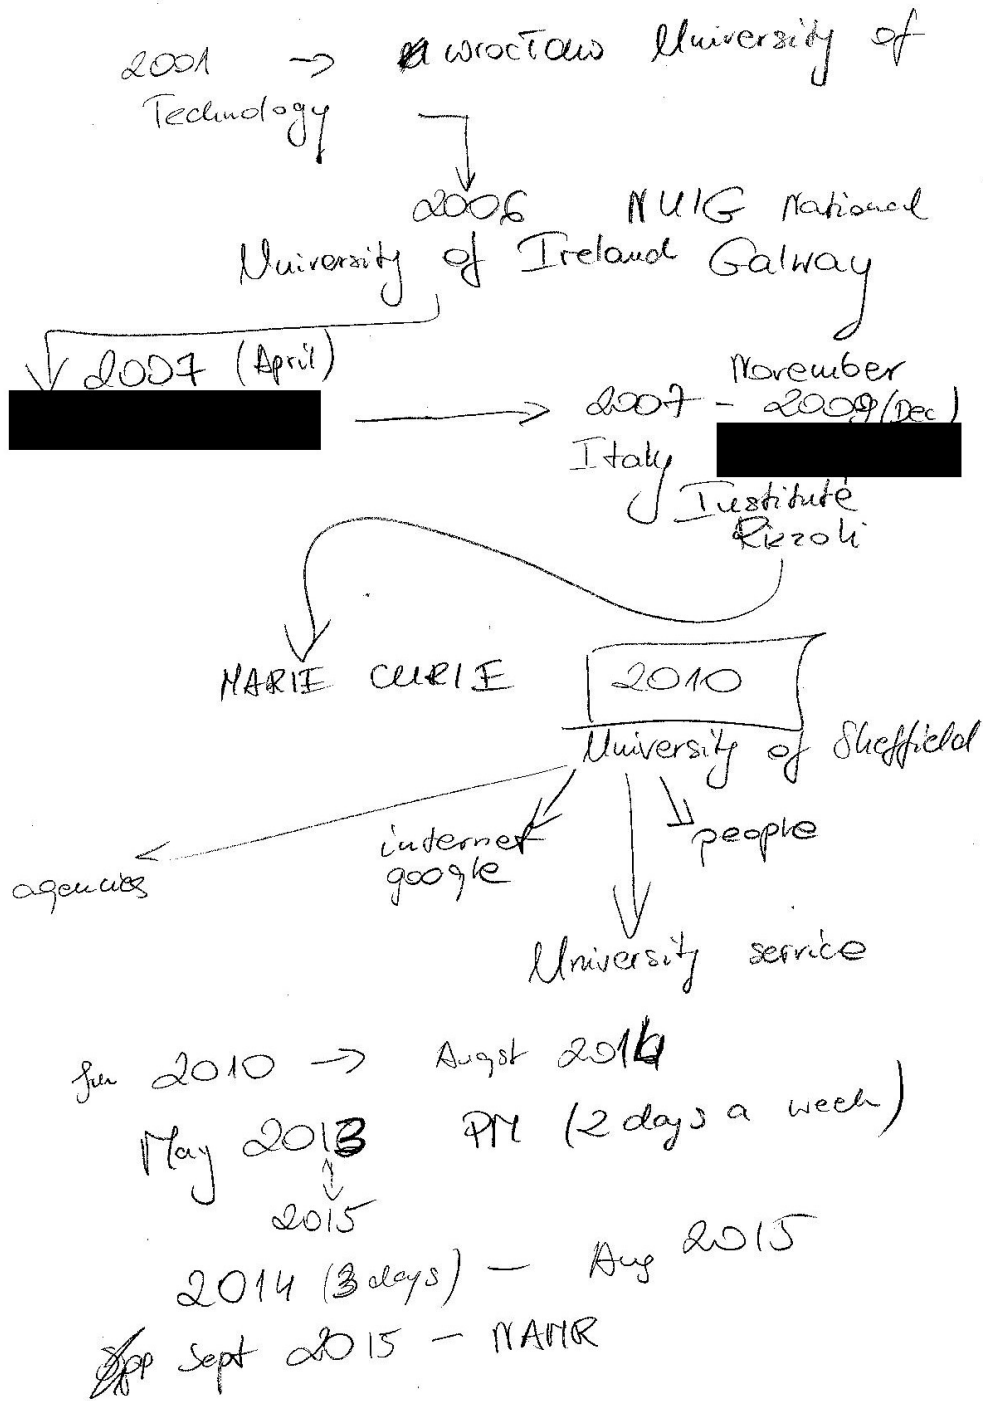 2001 → Wrocław University of
Technology
2006 NUIG National
University of Ireland Galway
2007 (April)
November
2007 - 2009 (Dec)
Italy
Institute
Rizzoli
MARIE CURIE 2010
University of Sheffield
internet
google
people
agencies
University service
Jun 2010 → Augst 2014
May 2013 PM (2 days a week)
2015
2014 (3 days) - Aug 2015
Sept 2015 - NAMR